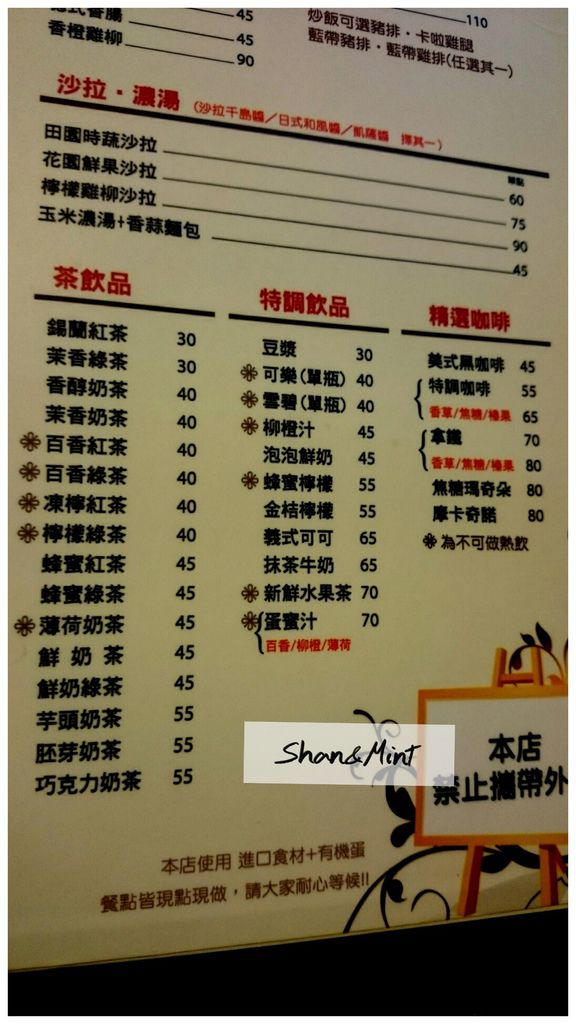 香腸 45
香橙雞柳 45
90
110
炒飯可選豬排·卡啦雞腿
藍帶豬排·藍帶雞排(任選其一)
沙拉·濃湯 (沙拉千島醬/日式和風醬/凱薩醬 擇其一)
單點
田園時蔬沙拉 60
花園鮮果沙拉 75
檸檬雞柳沙拉 90
玉米濃湯+香蒜麵包 45
茶飲品
錫蘭紅茶 30
茉香綠茶 30
香醇奶茶 40
茉香奶茶 40
❋百香紅茶 40
❋百香綠茶 40
❋凍檸紅茶 40
❋檸檬綠茶 40
蜂蜜紅茶 45
蜂蜜綠茶 45
❋薄荷奶茶 45
鮮奶茶 45
鮮奶綠茶 45
芋頭奶茶 55
胚芽奶茶 55
巧克力奶茶 55
特調飲品
豆漿 30
❋可樂(單瓶) 40
❋雪碧(單瓶) 40
❋柳橙汁 45
泡泡鮮奶 45
❋蜂蜜檸檬 55
金桔檸檬 55
義式可可 65
抹茶牛奶 65
❋新鮮水果茶 70
❋蛋蜜汁 70
百香/柳橙/薄荷
精選咖啡
美式黑咖啡 45
特調咖啡 55
香草/焦糖/榛果 65
拿鐵 70
香草/焦糖/榛果 80
焦糖瑪奇朵 80
摩卡奇諾 80
❋為不可做熱飲
Shan&Mint
本店
禁止攜帶外
本店使用 進口食材+有機蛋
餐點皆現點現做，請大家耐心等候!!